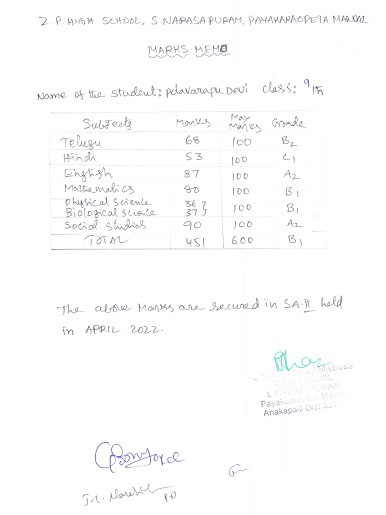 Z.P. HIGH SCHOOL, S. NARASAPURAM, PAYAKARAOPETA MANDAL
MARKS MEMO
Name of the student: Polavarapu Devi class: 9th
Subjects Marks Max Marks Grade
Telugu 68 100 B2
Hindi 53 100 C1
English 87 100 A2
Mathematics 80 100 B1
Physical Science 36
Biological Science 37 } 100 B1
Social Studies 90 100 A2
TOTAL 451 600 B1
The above Marks are secured in SA-II held
in APRIL 2022.
Mistress
Anakapalli Dist